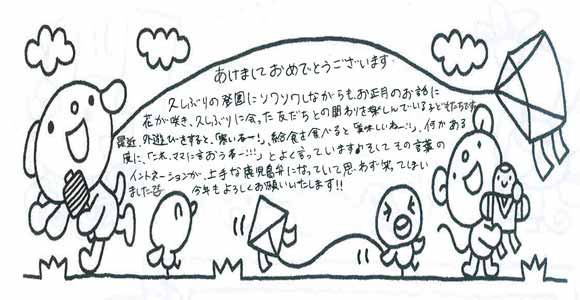 あけましておめでとうございます。
久しぶりの登園にソワソワしながらも、お正月のお話に
花が咲き、久しぶりに会った友だちとの関わりを楽しんでいる子どもたちです。
最近、外遊びをすると、「寒いねー!」、給食を食べると「美味しいねー!」、何かある
風に、ママに言おうねー!」とよく言っています♪そしてその言葉の
イントネーションが、上手な鹿児島弁になっていて思わず笑ってしまい
ました
今年もよろしくお願いいたします!!